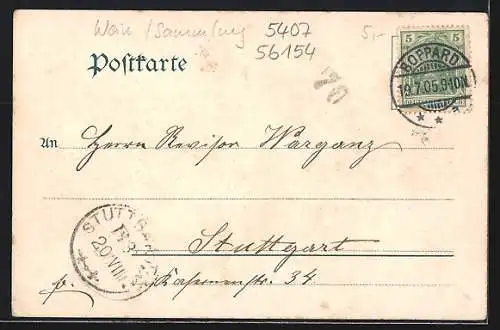 Wein / Sammlung 5407 5,-
56154
Postkarte
5
BOPPARD
19.7.05.9-10N.
An Herrn Revisor Warganz
STUTTGART
20.VII.
Stuttgart
Kasernenstr. 34